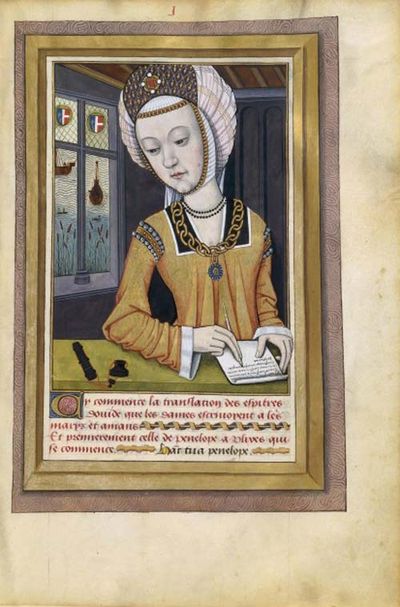 1
Cy commence la translation des epitres
Douide que les dames escriuoyent a leˢ
marys et amans
Et premierement celle de penelope a Vlixes qui
se commence. Hãc tua penelope.